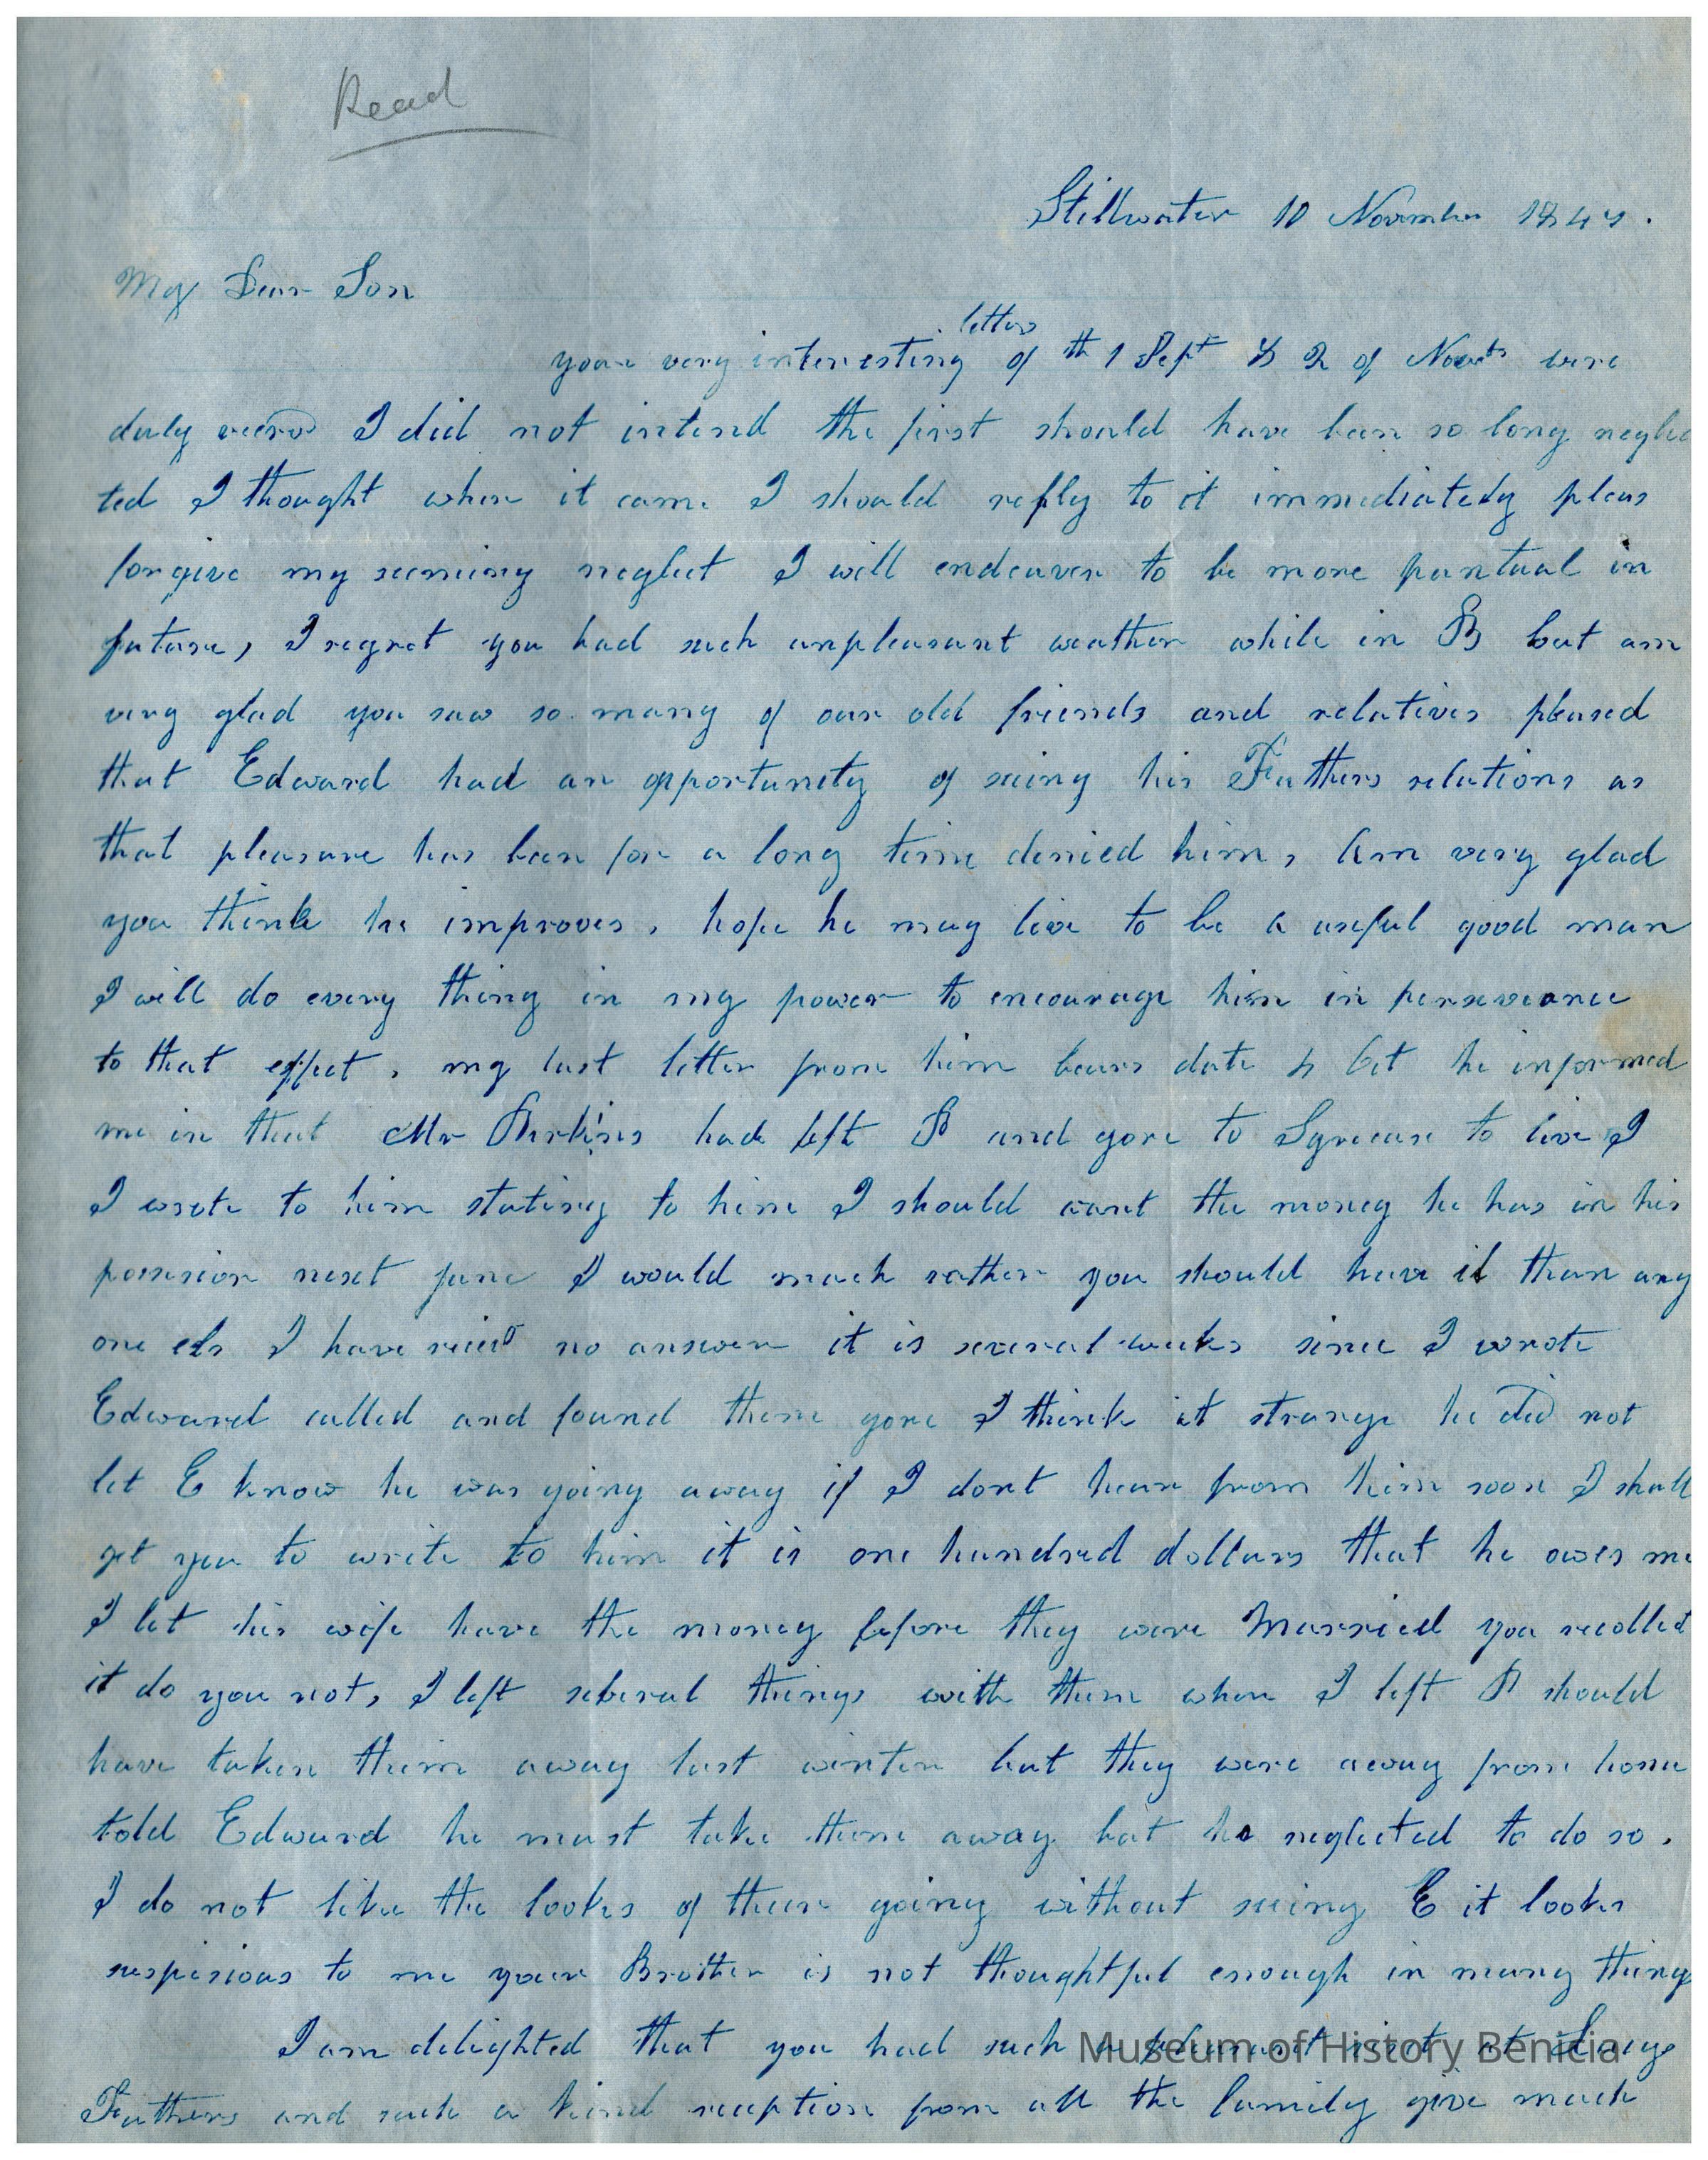 Read
Stillwater 10 November 184
My Dear Son
letters
your very interesting of th 1 Sept & 2 of were
duly I did not intend the first should have been so long neglec
ted I thought when it came I should reply to it immediately pleas
forgive my seeming neglect I will endeaver to be more puntual in
future, I regret you had such unpleasant weather while in B but am
very glad you saw so many of our old friends and relatives pleased
that Edward had an opportunity of seing his Fathers relations as
that pleasure has been for a long time denied him, Am very glad
you think he improves, hope he may live to be a useful good man
I will do every thing in my power to encourage him in perseverance
to that effect, my last letter from him bears date he informed
me in that Mr Perkins had left B and gone to Syracuse to live I
I wrote to him stating to him I should want the money he has in his
possesion next june I would much rather you should have it than any
one els I have no answer it is several weeks since I wrote
Edward called and found them gone I think it strange he did not
let E know he was going away if I dont hear from him soon I shall
get you to write to him it is one hundred dollars that he owes me
I let his wife have the money before they were Married you recollect
it do you not, I left several things with them when I left B should
have taken them away last winter but they were away from home
told Edward he must take them away but he neglected to do so.
I do not like the looks of their going without seeing E it looks
suspisious to me your Brother is not thoughtful enough in many things
I am delighted that you had such a pleasant visit at Lucys
Fathers and such a kind reception from all the family give much
Museum of History Benicia